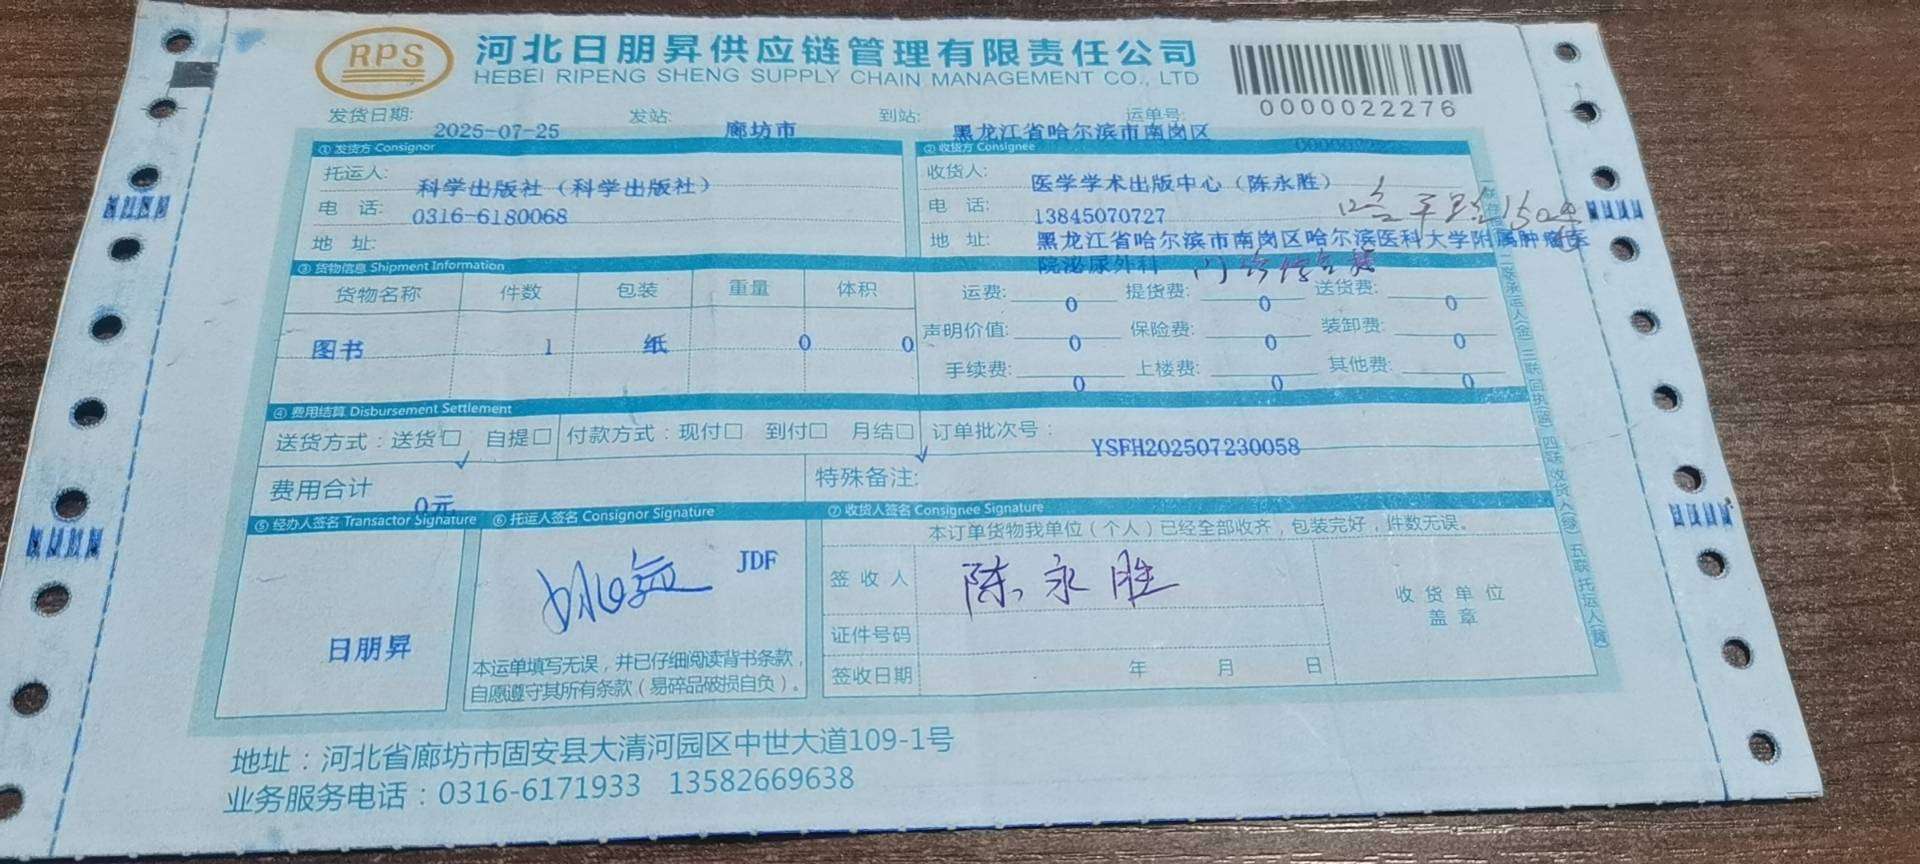 RPS
河北日朋昇供应链管理有限责任公司
HEBEI RIPENG SHENG SUPPLY CHAIN MANAGEMENT CO., LTD
0000022276
发货日期: 2025-07-25 发站: 廊坊市 到站: 黑龙江省哈尔滨市南岗区 运单号:
① 发货方 Consignor ② 收货方 Consignee
托运人: 科学出版社（科学出版社） 收货人: 医学学术出版中心（陈永胜）
电 话: 0316-6180068 电 话: 13845070727
地 址: 地 址: 黑龙江省哈尔滨市南岗区哈尔滨医科大学附属肿瘤医
院泌尿外科
③ 货物信息 Shipment Information
货物名称 件数 包装 重量 体积 运费: 0 提货费: 0 送货费: 0
图书 1 纸 0 0 声明价值: 0 保险费: 0 装卸费: 0
手续费: 0 上楼费: 0 其他费: 0
④ 费用结算 Disbursement Settlement
送货方式：送货□ 自提□ 付款方式：现付□ 到付□ 月结□ 订单批次号： YSFH202507230058
费用合计 0元 特殊备注:
⑤ 经办人签名 Transactor Signature ⑥ 托运人签名 Consignor Signature ⑦ 收货人签名 Consignee Signature
本订单货物我单位（个人）已经全部收齐，包装完好，件数无误。
JDF
签收人 陈永胜
收货单位
盖章
证件号码
日朋昇
本运单填写无误，并已仔细阅读背书条款，
自愿遵守其所有条款（易碎品破损自负）。
签收日期 年 月 日
地址：河北省廊坊市固安县大清河园区中世大道109-1号
业务服务电话：0316-6171933 13582669638